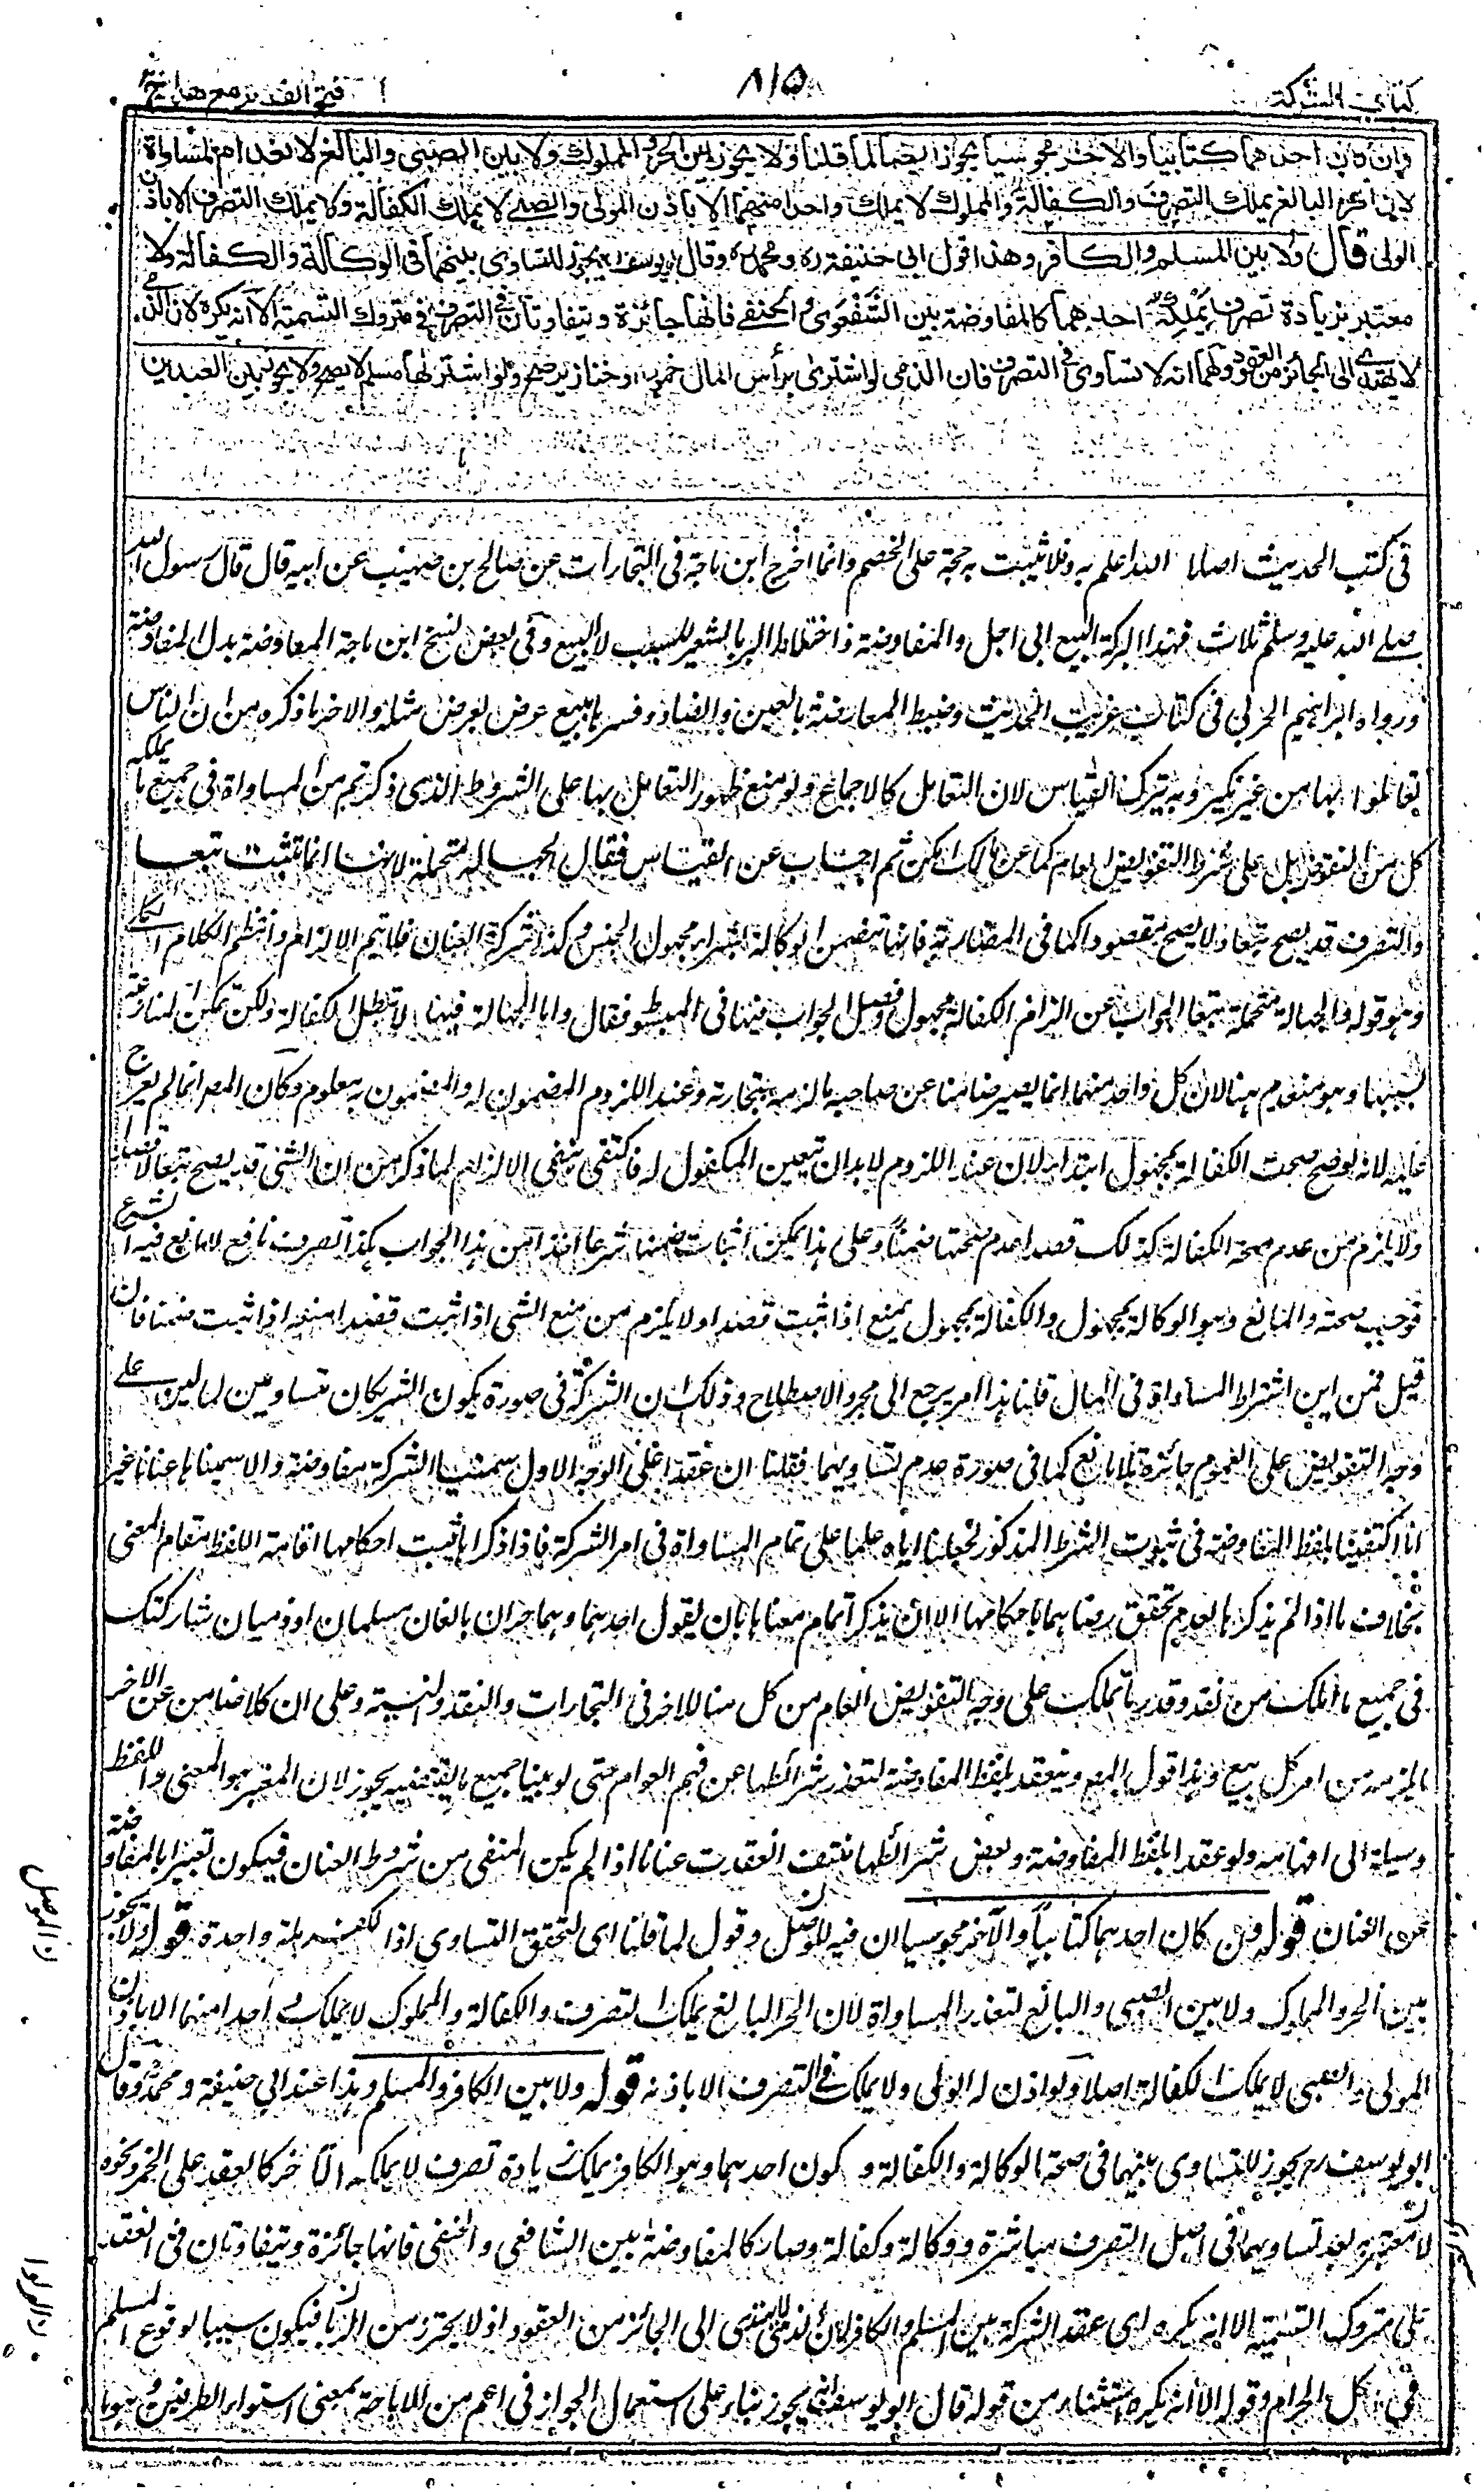 كتاب الشركة
٨١٥
فتح القدير مع هداية ج ٢
وان كان احدهما كتابيا والاخر مجوسيا يجوز ايضا لما قلنا ولا يجوز بين الحر والمملوك ولا بين الصبي والبالغ لانعدام المساواة
لان الحر البالغ يملك التصرف والكفالة والمملوك لا يملك واحدا منهما الا باذن المولى والصبي لا يملك الكفالة ولا يملك التصرف الا باذن
الولى قال ولا بين المسلم والكافر وهذا قول ابي حنيفة ره ومحمد ره وقال ابو يوسف ره يجوز للتساوى بينهما في الوكالة والكفالة ولا
معتبر بزيادة تصرف يملكه احدهما كالمفاوضة بين الشفعوى والحنفى فانها جائزة ويتفاوتان في التصرف في متروك التسمية الا انه يكره لان الذمى
لا يهتدى الى الجائز من العقود ولهما انه لا تساوى في التصرف فان الذمى لو اشترى برأس المال خمورا او خنازير صح ولو اشتراها مسلم لا يصح ولا يجوز بين العبدين
فى كتب الحديث اصلا الله اعلم به فلا تثبت به حجة على الخصم وانما اخرج ابن ماجة فى التجارات عن صالح بن صهيب عن ابيه قال قال رسول الله
صلى الله عليه وسلم ثلاث فيهن البركة البيع الى اجل والمفاوضة واختلاط البر بالشعير للبيت لا للبيع وفى بعض نسخ ابن ماجة المعاوضة بدل المفاوضة
ورواه ابراهيم الحربى فى كتاب غريب الحديث وضبط المعارضة بالعين والضاد وفسرها ببيع عرض بعرض مثله والاخر ما ذكره من ان الناس
تعاملوا بها من غير نكير وبه يترك القياس لان التعامل كالاجماع ولو منع ظهور التعامل بها على الشروط الذى ذكرتم من المساواة فى جميع ما يملكه
كل من النقود بل على شرط التفويض العام كما عن مالك امكن ثم اجاب عن القياس فقال الجهالة متحملة لانها انما تثبت تبعا
والتصرف قد يصح تبعا ولا يصح مقصودا كما فى المضاربة فانها تتضمن الوكالة بشراء مجهول الجنس وكذا شركة العنان فلا يتم الالزام وانتظم الكلام
وهو قوله والجهالة متحملة تبعا الجواب عن الزام الكفالة بمجهول وفصل الجواب فيها فى المبسوط فقال واما الجهالة فعينها لا تبطل الكفالة ولكن تمكن المنازعة
بسببها وهو منعدم هنا لان كل واحد منهما انما يصير ضامنا عن صاحبه ما لزمه بتجارته وعند اللزوم المضمون له والمضمون به معلوم وكان المص انما لم يعرج
عليه لانه لو صح صحت الكفالة بمجهول ابتداء لان عند اللزوم لا بد ان يتعين المكفول له فاكتفى بنفى الالزام لما ذكر من ان الشئ قد يصح تبعا لا قصدا
ولا يلزم من عدم صحة الكفالة كذلك قصدا عدم صحتها ضمنا وعلى هذا يمكن اثبات ضمنها شرعا اخذا من هذا الجواب هكذا تصرف نافع لا مانع فيه
فوجب صحته والمانع وهو الوكالة بمجهول والكفالة بمجهول يمنع اذا ثبت قصدا ولا يلزم من منع الشئ اذا ثبت قصدا منعه اذا ثبت ضمنا فان
قيل فمن اين اشتراط المساواة فى المال قلنا هذا امر يرجع الى مجرد الاصطلاح وذلك ان الشركة فى صورة يكون الشريكان متساويين لمالين على
وجه التفويض على العموم جائزة بلا مانع كما فى صورة عدم تساويهما فقلنا ان عقدا على الوجه الاول سمينا الشركة مفاوضة والا سميناها عنانا غير
انا اكتفينا بلفظ المفاوضة فى ثبوت الشرط المذكور لجعلنا اياه علما على تمام المساواة فى امر الشركة فاذا ذكراها ثبت احكامها اقامة اللفظ مقام المعنى
بخلاف ما اذا لم يذكراها لعدم تحقق رضاهما باحكامها الا ان يذكرا تمام معناها بان يقول احدهما وهما حران بالغان مسلمان او ذميان شاركتك
فى جميع ما املك من نقد وقدر ما تملك على وجه التفويض العام من كل منا للاخر فى التجارات والنقد والنسية وعلى ان كلا ضامن عن الاخر
ما يلزمه من امر كل بيع وهذا قول المص وينعقد بلفظ المفاوضة لتعذر شرائطها عن فهم العوام حتى لو بينا جميع ما يقتضيه يجوز لان المعتبر هو المعنى واللفظ
وسيلة الى افهامه ولو عقد بلفظ المفاوضة وبعض شرائطها منتف انعقدت عنانا اذا لم يكن المنفى من شروط العنان فيكون تعبيرا بالمفاوضة
عن العنان قوله وان كان احدهما كتابيا والآخر مجوسيا ان فيه للوصل وقول لما قلنا اى لتحقق التساوى اذا الكفر ملة واحدة قوله ولا يجوز
بين الحر والمملوك ولا بين الصبى والبالغ لتعذر المساواة لان الحر البالغ يملك التصرف والكفالة والمملوك لا يملك احدا منهما الا باذن
المولى والصبى لا يملك الكفالة اصلا ولو اذن له الولى ولا يملك التصرف الا باذنه قوله ولا بين الكافر والمسلم وهذا عند ابى حنيفة ومحمد وقال
ابو يوسف رح يجوز للتساوى بينهما فى صحة الوكالة والكفالة وكون احدهما وهو الكافر يملك زيادة تصرف لا يملكه الآخر كالعقد على الخمر ونحوه
لا معتبر به بعد تساويهما فى اصل التصرف مباشرة ووكالة وكفالة وصار كالمفاوضة بين الشافعى والحنفى فانها جائزة ويتفاوتان فى العقد
على متروك التسمية الا انه يكره اى عقد الشركة بين المسلم والكافر لان الذمى لا يهتدى الى الجائز من العقود اذ لا يحترز من الربا فيكون سببا لوقوع المسلم
فى اكل الحرام وقوله الا انه يكره استثناء من قوله قال ابو يوسف انه يجوز بناء على استعمال الجواز فى اعم من الاباحة بمعنى استواء الطرفين وهو ما